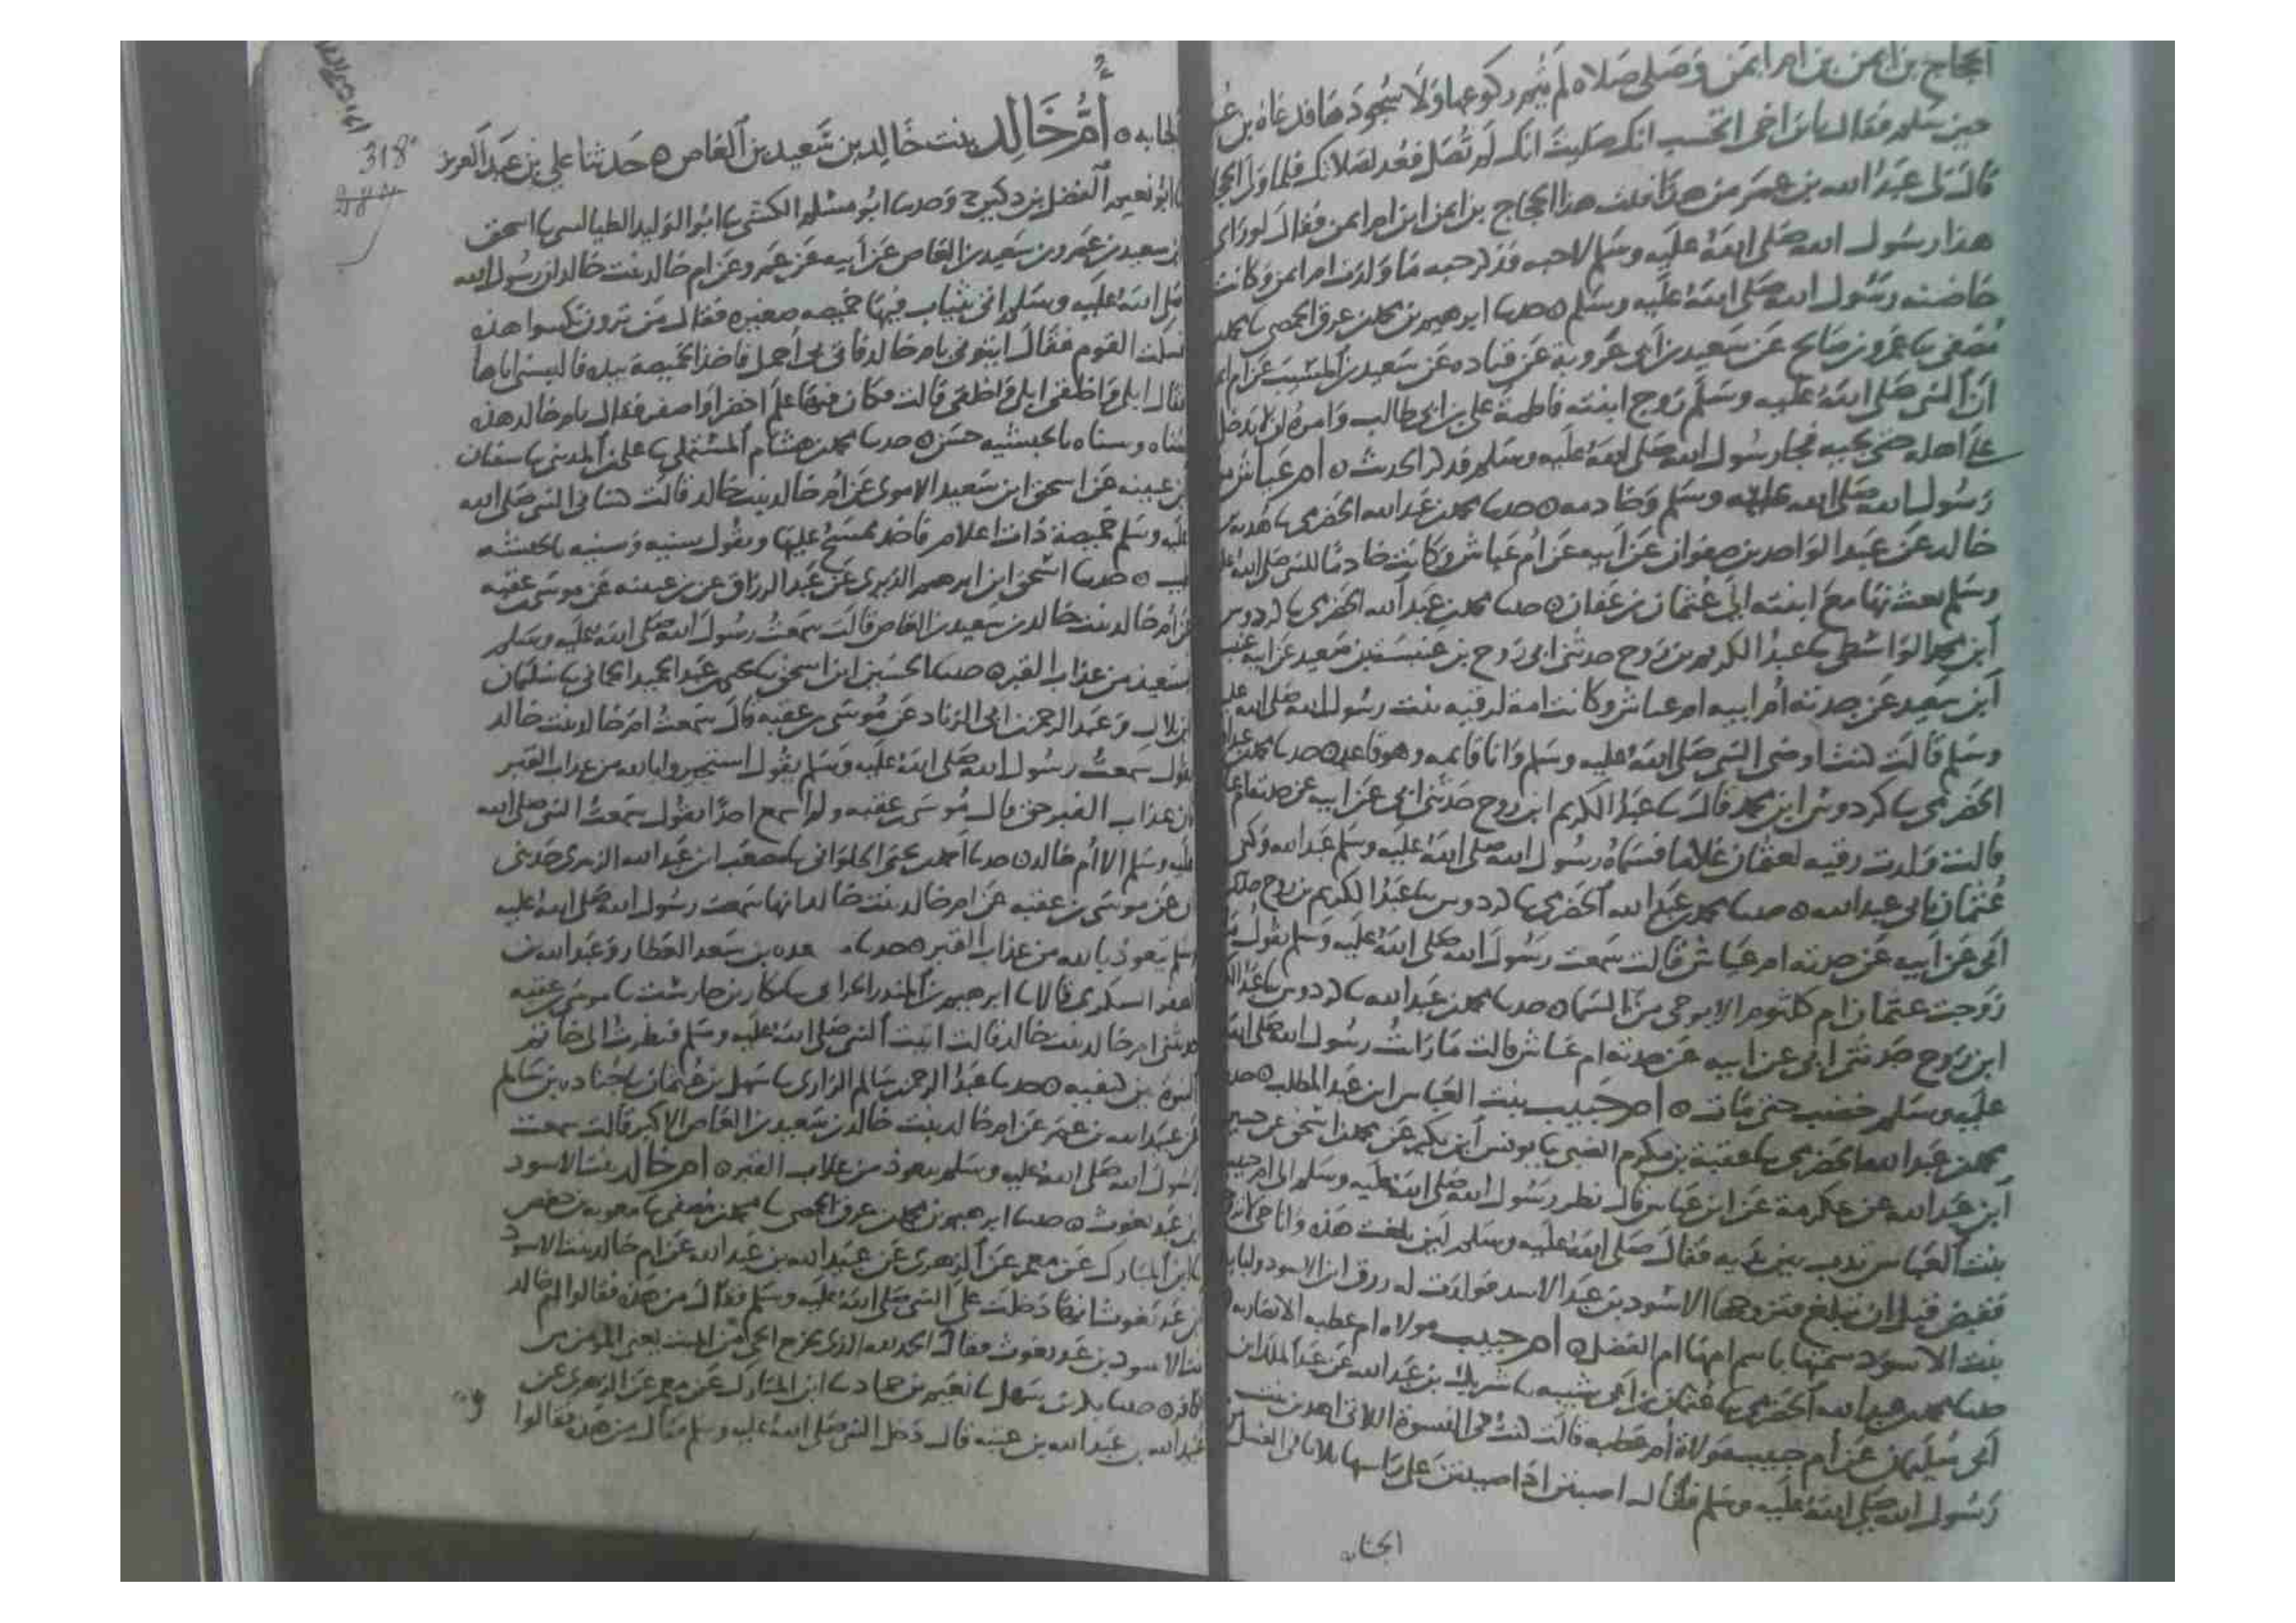 الحجاج بن ايمن بن ام ايمن وصلى صلاه لم يتم ركوعها ولا سجودها فدعاه بن عمر
حين سلم فقال يابن اخي اتحسب انك صليت انك لم تصل فعد لصلاتك فلما ولى الحجاج
قال لي عبد الله بن عمر من هذا قلت هذا الحجاج بن ايمن ابن ام ايمن فقال لو راى
هذا رسول الله صلى الله عليه وسلم لاحبه فذكر حبه ما ولدت ام ايمن وكانت
حاضنه رسول الله صلى الله عليه وسلم ه حدثنا ابرهيم بن محمد بن عرق الحمصي ثنا محمد
مصفى ثنا عمرو بن صالح عن سعيد بن ابي عروبة عن قتاده عن سعيد بن المسيب عن ام ايمن
ان النبي صلى الله عليه وسلم زوج ابنته فاطمة علي بن ابي طالب وامره ان لا يدخل
على اهله حتى يجيه فجا رسول الله صلى الله عليه وسلم فذكر الحديث ه ام عياش
رسول الله صلى الله عليه وسلم وخادمه ه حدثنا محمد بن عبد الله الحضرمي ثنا هدبة بن
خالد عن عبد الواحد بن صفوان عن ابيه عن ام عياش وكانت خادما للنبي صلى الله عليه
وسلم بعث بها مع ابنته الى عثمان بن عفان ه حدثنا محمد بن عبد الله الحضرمي ثنا كردوس
ابن محمد الواسطي ثنا عبد الكريم بن روح حدثني ابي روح بن عنبسة بن سعيد عن ابيه عنبسة
ابن سعيد عن جدته ام ابيه ام عياش وكانت امة لرقيه بنت رسول الله صلى الله عليه
وسلم قالت كنت اوضي النبي صلى الله عليه وسلم وانا قايمه وهو قاعد ه حدثنا محمد بن عبد الله
الحضرمي ثنا كردوس ابن محمد قال ثنا عبد الكريم ابن روح حدثني ابي عن ابيه عن جدته ام عياش
قالت ولدت رقيه لعثمان غلاما فسماه رسول الله صلى الله عليه وسلم عبد الله وكنى
عثمان بابي عبد الله ه حدثنا محمد بن عبد الله الحضرمي ثنا كردوس ثنا عبد الكريم بن روح حدثني
ابي عن ابيه عن جدته ام عياش قالت سمعت رسول الله صلى الله عليه وسلم يقول ما
زوجت عثمان ام كلثوم الا بوحي من السما ه حدثنا محمد بن عبد الله ثنا كردوس ثنا عبد الكريم
ابن روح حدثني ابي عن ابيه عن جدته ام عياش قالت ما رايت رسول الله صلى الله
عليه وسلم خضب حتى مات ه ام حبيب بنت العباس ابن عبد المطلب ه حدثنا
محمد بن عبد الله الحضرمي ثنا عقبة بن مكرم الضبي ثنا يونس ابن بكير عن محمد بن اسحق عن حسين
ابن عبد الله عن عكرمة عن ابن عباس قال نظر رسول الله صلى الله عليه وسلم الى ام حبيب
بنت العباس تدب بين يديه فقال صلى الله عليه وسلم لين بلغت هذه وانا حي لاتزوجنها
فقبض قبل ان تبلغ فتزوجها الاسود بن عبد الاسد فولدت له رزق ابن الاسود ولبابه
بنت الاسود سمتها باسم امها ام الفضل ه ام حبيب مولاه ام عطيه الانصاريه
حدثنا محمد بن عبد الله الحضرمي ثنا عثمان بن ابي شيبه ثنا شريك بن عبد الله عن عبد الملك بن
ابي سليمان عن ام حبيب مولاة ام عطيه قالت كنت في النسوة اللاتي اهدين بنت
رسول الله صلى الله عليه وسلم فقال اصببن اذا صببتن على راسها ثلاثا في الغسل
الجنابه
الجنابه ه أم خالد بنت خالد بن سعيد بن العاص ه حدثنا علي بن عبد العزيز
318
ثنا ابو نعيم الفضل بن دكين ح وحدثنا ابو مسلم الكشي ثنا ابو الوليد الطيالسي ثنا اسحق
بن سعيد بن عمرو بن سعيد بن العاص عن ابيه عن عمرو عن ام خالد بنت خالد ان رسول الله
صلى الله عليه وسلم اتي بثياب فيها خميصه صغيره فقال من ترون نكسوا هذه
فسكت القوم فقال ايتوني بام خالد فاتي بي احمل فاخذ الخميصة بيده فالبسني اياها
فقال ابلي واخلقي ابلي واخلقي قالت وكان فيها علم اخضر او اصفر فقال يام خالد هذه
سناه وسناه بالحبشيه حسن ه حدثنا محمد بن هشام المستملي ثنا علي بن المديني ثنا سفيان
بن عيينه عن اسحق ابن سعيد الاموي عن ام خالد بنت خالد قالت كساني النبي صلى الله
عليه وسلم خميصة ذات اعلام فاخذ يمسح عليها ويقول سنيه وسنيه بالحبشيه
طيب ه حدثنا اسحق ابن ابرهيم الدبري عن عبد الرزاق عن بن عيينه عن موسى بن عقبه
عن ام خالد بنت خالد بن سعيد بن العاص قالت سمعت رسول الله صلى الله عليه وسلم
يستعيذ من عذاب القبر ه حدثنا الحسين ابن اسحق ثنا يحيى بن عبد الحميد الحماني ثنا سليمان
بن بلال وعبد الرحمن بن ابي الزناد عن موسى بن عقبه قال سمعت ام خالد بنت خالد
تقول سمعت رسول الله صلى الله عليه وسلم يقول استجيروا بالله من عذاب القبر
فان عذاب القبر حق قال موسى بن عقبه ولم اسمع احدا يقول سمعت النبي صلى الله
عليه وسلم الا ام خالد ه حدثنا احمد بن يحيى الحلواني ثنا مصعب ابن عبد الله الزبيري حدثني
عن موسى بن عقبه عن ام خالد بنت خالد انها سمعت رسول الله صلى الله عليه
وسلم يتعوذ بالله من عذاب القبر ه حدثنا بن سعد العطار وعبد الله بن
الصقر السكري قالا ثنا ابرهيم بن المنذر الحزامي ثنا بكار بن جارست ثنا موسى بن عقبه
حدثتني ام خالد بنت خالد قالت اتيت النبي صلى الله عليه وسلم فنظرت الى خاتم
النبوة بين كتفيه ه حدثنا عبد الرحمن بن سالم الرازي ثنا سهل بن عثمان ثنا جناده بن سالم
عن عبيد الله بن عمر عن ام خالد بنت خالد بن سعيد بن العاص الاكبر قالت سمعت
رسول الله صلى الله عليه وسلم يتعوذ من عذاب القبر ه ام خالد بنت الاسود
بن عبد يغوث ه حدثنا ابرهيم بن محمد بن عرق الحمصي ثنا محمد بن مصفى ثنا معويه بن حفص
ثنا ابن المبارك عن معمر عن الزهري عن عبيد الله بن عبد الله عن ام خالد بنت الاسود
بن عبد يغوث انها دخلت على النبي صلى الله عليه وسلم فقال من هذه فقالوا ام خالد
بنت الاسود بن عبد يغوث فقال الحمد لله الذي يخرج الحي من الميت يعني المومن من
الكافر ه حدثنا بكر بن سهل ثنا نعيم بن حماد ثنا ابن المبارك عن معمر عن الزهري عن
عبيد الله بن عبد الله بن عتبه قال دخل النبي صلى الله عليه وسلم فقال من هذه فقالوا